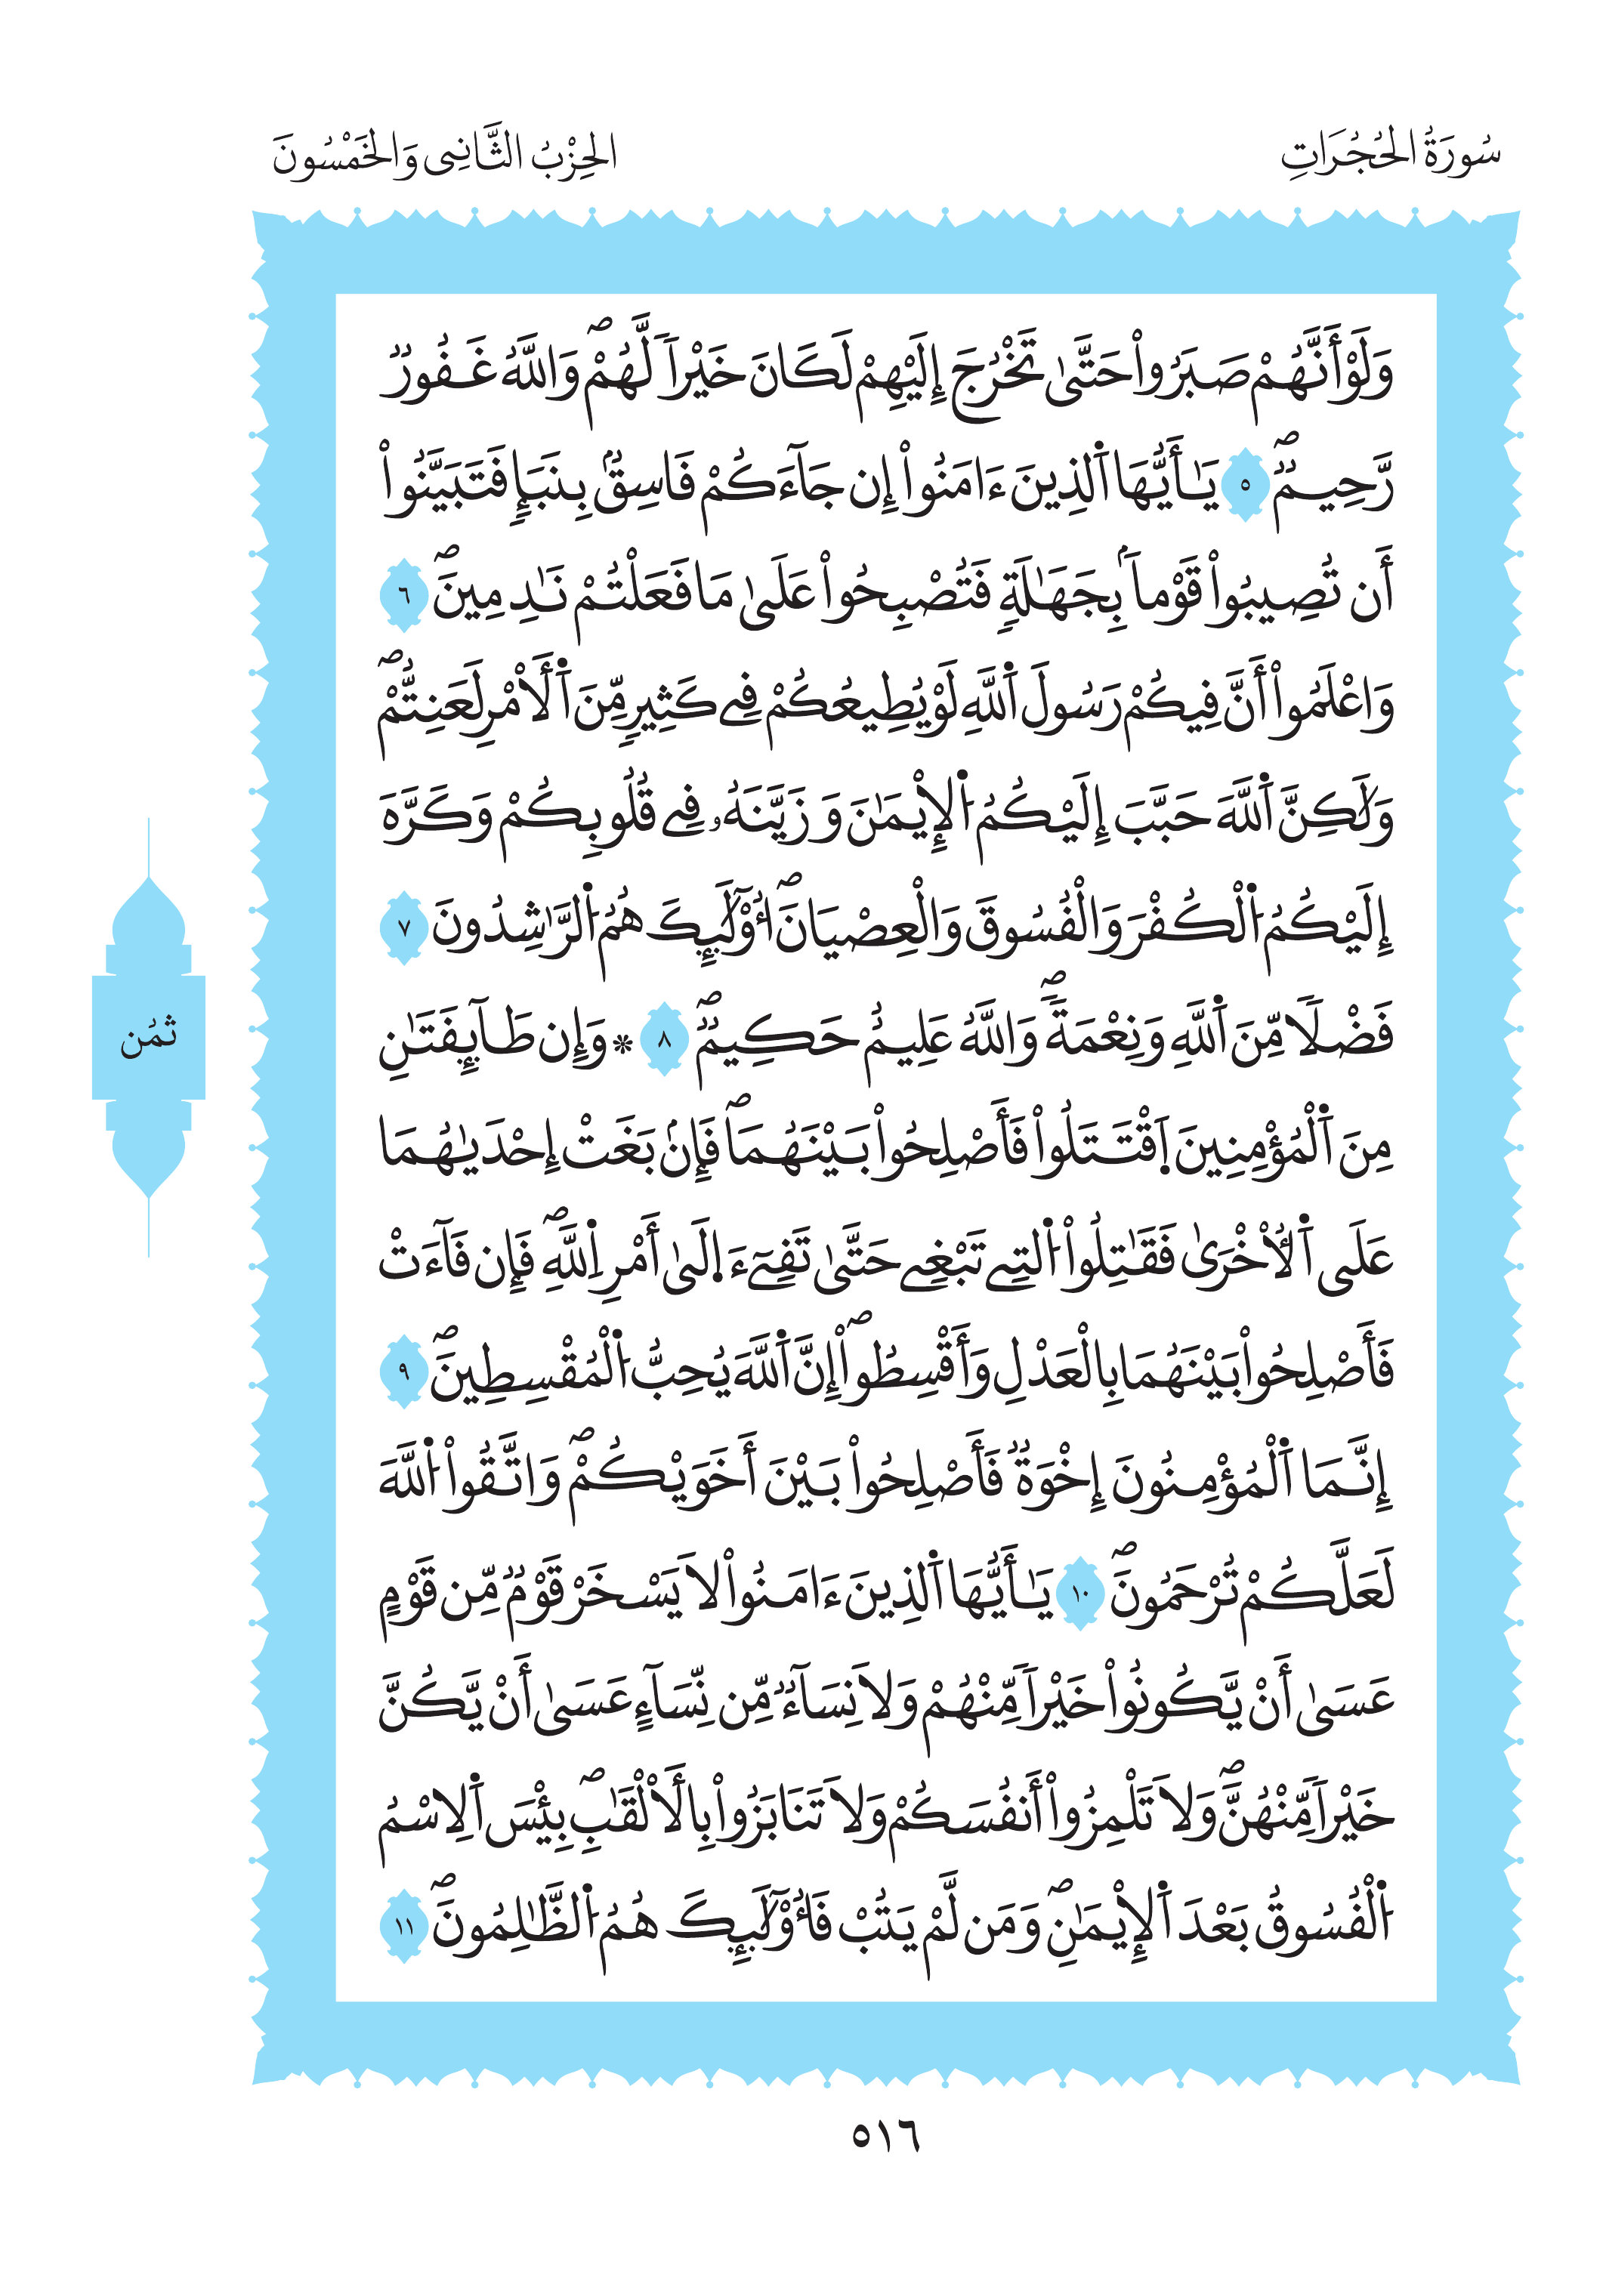 سُورَةُ الحُجُرَاتِ
الحِزْبُ الثَّانِى وَالخَمْسُونَ
وَلَوْ أَنَّهُمْ صَبَرُواْ حَتَّىٰ تَخْرُجَ إِلَيْهِمْ لَكَانَ خَيْراٗ لَّهُمْۖ وَاللَّهُ غَفُورٞ
رَّحِيمٞۖ ٥ يَٰأَيُّهَا اَ۬لذِينَ ءَامَنُواْ إِن جَآءَكُمْ فَاسِقُۢ بِنَبَإٖ فَتَبَيَّنُواْ
أَن تُصِيبُواْ قَوْماَۢ بِجَهَٰلَةٖ فَتُصْبِحُواْ عَلَىٰ مَا فَعَلْتُمْ نَٰدِمِينَۖ ٦
وَاعْلَمُواْ أَنَّ فِيكُمْ رَسُولَ اَ۬للَّهِ لَوْ يُطِيعُكُمْ فِے كَثِيرٖ مِّنَ اَ۬لَامْرِ لَعَنِتُّمْۖ
وَلَٰكِنَّ اَ۬للَّهَ حَبَّبَ إِلَيْكُمُ اُ۬لْإِيمَٰنَ وَزَيَّنَهُۥ فِے قُلُوبِكُمْ وَكَرَّهَ
إِلَيْكُمُ اُ۬لْكُفْرَ وَالْفُسُوقَ وَالْعِصْيَانَۖ أُوْلَٰٓئِكَ هُمُ اُ۬لرَّٰشِدُونَ ٧
فَضْلاٗ مِّنَ اَ۬للَّهِ وَنِعْمَةٗۖ وَاللَّهُ عَلِيمٌ حَكِيمٞۖ ٨ * وَإِن طَآئِفَتَٰنِ
مِنَ اَ۬لْمُؤْمِنِينَ اَ۪قْتَتَلُواْ فَأَصْلِحُواْ بَيْنَهُمَاۖ فَإِنۢ بَغَتْ إِحْدَيٰهُمَا
عَلَى اَ۬لْأُخْرَىٰ فَقَٰتِلُواْ اُ۬لتِے تَبْغِے حَتَّىٰ تَفِےٓءَ اِ۪لَىٰ أَمْرِ اِ۬للَّهِۖ فَإِن فَآءَتْ
فَأَصْلِحُواْ بَيْنَهُمَا بِالْعَدْلِ وَأَقْسِطُواْۖ إِنَّ اَ۬للَّهَ يُحِبُّ اُ۬لْمُقْسِطِينَۖ ٩
إِنَّمَا اَ۬لْمُؤْمِنُونَ إِخْوَةٞ فَأَصْلِحُواْ بَيْنَ أَخَوَيْكُمْۖ وَاتَّقُواْ اُ۬للَّهَ
لَعَلَّكُمْ تُرْحَمُونَۖ ١٠ يَٰأَيُّهَا اَ۬لذِينَ ءَامَنُواْ لَا يَسْخَرْ قَوْمٞ مِّن قَوْمٍ
عَسَىٰ أَنْ يَّكُونُواْ خَيْراٗ مِّنْهُمْ وَلَا نِسَآءٞ مِّن نِّسَآءٍ عَسَىٰ أَنْ يَّكُنَّ
خَيْراٗ مِّنْهُنَّۖ وَلَا تَلْمِزُواْ أَنفُسَكُمْ وَلَا تَنَابَزُواْ بِالْأَلْقَٰبِۖ بِئْسَ اَ۬لِاسْمُ
اُ۬لْفُسُوقُ بَعْدَ اَ۬لْإِيمَٰنِۖ وَمَن لَّمْ يَتُبْ فَأُوْلَٰٓئِكَ هُمُ اُ۬لظَّٰلِمُونَۖ ١١
ثمُن
٥١٦